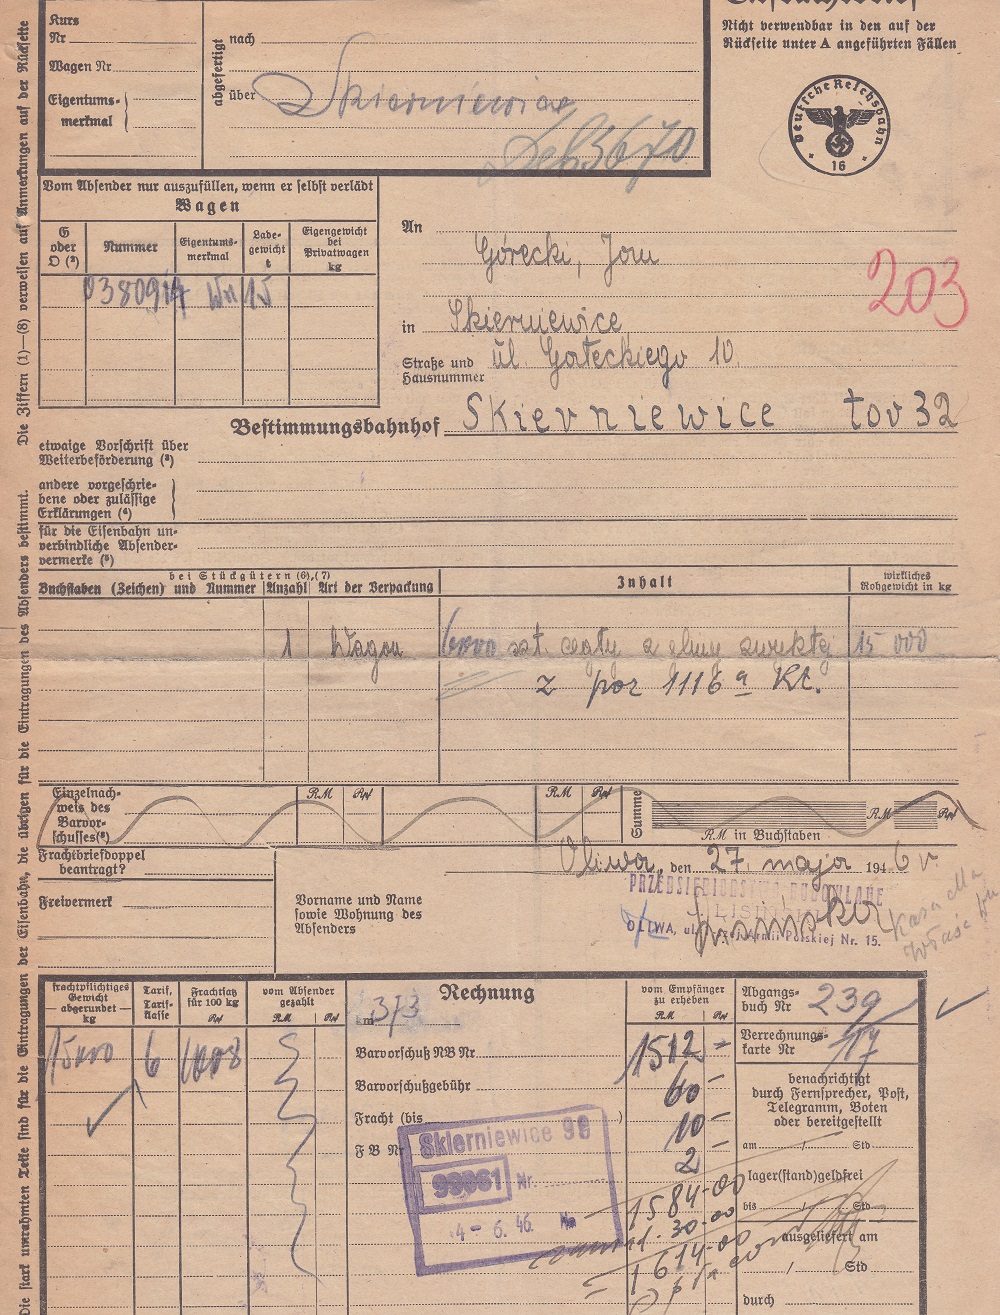 Nicht verwendbar in den auf der
Rückseite unter A angeführten Fällen
Kurs
Nr
Wagen Nr
Eigentums-
merkmal
abgefertigt
nach
über
Skierniewice
3670
Deutsche Reichsbahn
16
Vom Absender nur auszufüllen, wenn er selbst verlädt
Wagen
G
oder
O (²)
Nummer
Eigentums-
merkmal
Lade-
gewicht
t
Eigengewicht
bei
Privatwagen
kg
15
An
Górecki, Jan
203
in
Skierniewice
Straße und
Hausnummer
ul. Gałeckiego 10.
Bestimmungsbahnhof
Skierniewice tov 32
etwaige Vorschrift über
Weiterbeförderung (³)
andere vorgeschrie-
bene oder zulässige
Erklärungen (⁴)
für die Eisenbahn un-
verbindliche Absender-
vermerke (⁵)
bei Stückgütern (6),(7)
Buchstaben (Zeichen) und Nummer
Anzahl
Art der Verpackung
Inhalt
wirkliches
Rohgewicht in kg
1 Wagon 6000 szt. cegły zwykłej 15 000
z por 1116 a Kt.
Einzelnach-
weis des
Barvor-
schusses(⁸)
RM
Rpf
RM
Rpf
Summe
RM
Rpf
RM in Buchstaben
Frachtbriefdoppel
beantragt?
Oliwa, den 27. maja 1946 r.
Freivermerk
Vorname und Name
sowie Wohnung des
Absenders
PRZEDSIĘBIORSTWO BUDOWLANE
OLIWA, ul. Armii Polskiej Nr. 15.
Die Ziffern (1)—(8) verweisen auf Anmerkungen auf der Rückseite
Die stark umrahmten Teile sind für die Eintragungen der Eisenbahn, die übrigen für die Eintragungen des Absenders bestimmt.
frachtpflichtiges
Gewicht
— abgerundet —
kg
Tarif,
Tarif-
klasse
Frachtsatz
für 100 kg
Rpf
vom Absender
gezahlt
RM
Rpf
373
km
Rechnung
vom Empfänger
zu erheben
RM
Rpf
Abgangs-
buch Nr 239
Verrechnungs-
karte Nr 717
15000
6
1008
Barvorschuß NB Nr
1512 —
Barvorschußgebühr
60 —
Fracht (bis )
10 —
F B Nr
2 —
Skierniewice 99
99561 Nr.
4 - 6. 46.
1584-00
30-00
1614-00
benachrichtigt
durch Fernsprecher, Post,
Telegramm, Boten
oder bereitgestellt
am / Std
lager(stand)geldfrei
bis / Std
ausgeliefert am
/ Std
durch